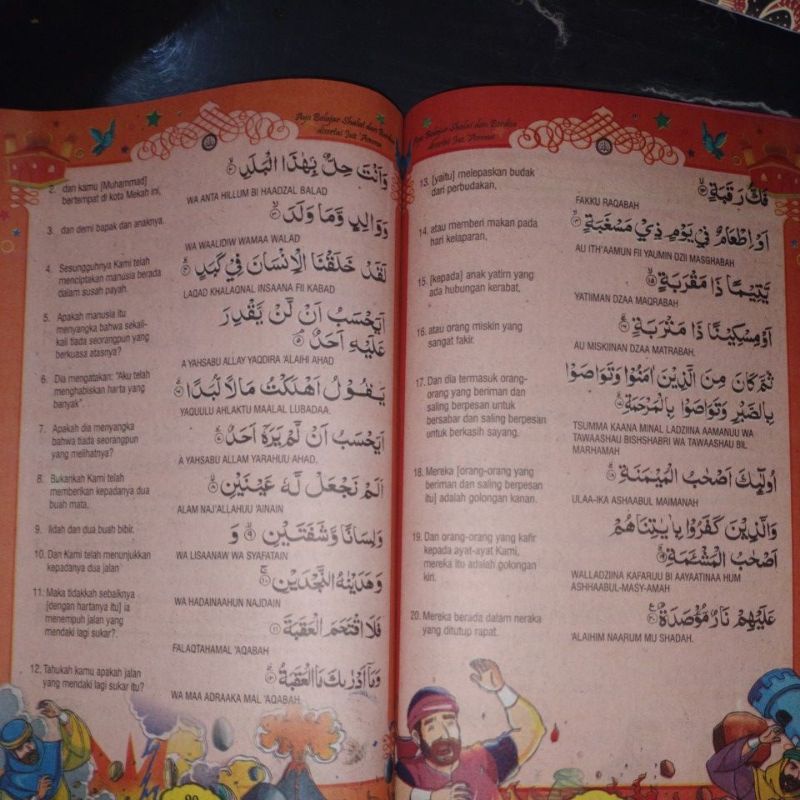 Aya Belajar Shalat dan Berdoa
disertai Juz 'Amma
2. dan kamu [Muhammad]
bertempat di kota Mekah ini,
وَاَنْتَ حِلٌّۢ بِهٰذَا الْبَلَدِ ۙ٢
WA ANTA HILLUM BI HAADZAL BALAD
3. dan demi bapak dan anaknya.
وَوَالِدٍ وَّمَا وَلَدَ ۙ٣
WA WAALIDIW WAMAA WALAD
4. Sesungguhnya Kami telah
menciptakan manusia berada
dalam susah payah.
لَقَدْ خَلَقْنَا الْاِنْسَانَ فِيْ كَبَدٍ ۗ٤
LAQAD KHALAQNAL INSAANA FII KABAD
5. Apakah manusia itu
menyangka bahwa sekali-
kali tiada seorangpun yang
berkuasa atasnya?
اَيَحْسَبُ اَنْ لَّنْ يَّقْدِرَ
عَلَيْهِ اَحَدٌ ۘ٥
A YAHSABU ALLAY YAQDIRA 'ALAIHI AHAD
6. Dia mengatakan: "Aku telah
menghabiskan harta yang
banyak".
يَقُوْلُ اَهْلَكْتُ مَالًا لُّبَدًا ۗ
YAQUULU AHLAKTU MAALAL LUBADAA.
7. Apakah dia menyangka
bahwa tiada seorangpun
yang melihatnya?
اَيَحْسَبُ اَنْ لَّمْ يَرَهٗٓ اَحَدٌ ۗ
A YAHSABU ALLAM YARAHUU AHAD.
8. Bukankah Kami telah
memberikan kepadanya dua
buah mata,
اَلَمْ نَجْعَلْ لَّهٗ عَيْنَيْنِ ۙ٨
ALAM NAJ'ALLAHUU 'AINAIN
9. lidah dan dua buah bibir.
وَلِسَانًا وَّشَفَتَيْنِ ۙ٩ وَ
WA LISAANAW WA SYAFATAIN
10. Dan Kami telah menunjukkan
kepadanya dua jalan
وَهَدَيْنٰهُ النَّجْدَيْنِ ۚ١٠
WA HADAINAAHUN NAJDAIN
11. Maka tidakkah sebaiknya
[dengan hartanya itu] ia
menempuh jalan yang
mendaki lagi sukar?.
فَلَا اقْتَحَمَ الْعَقَبَةَ ۖ١١
FALAQTAHAMAL 'AQABAH
12. Tahukah kamu apakah jalan
yang mendaki lagi sukar itu?
وَمَآ اَدْرٰىكَ مَا الْعَقَبَةُ ۗ١٢
WA MAA ADRAAKA MAL 'AQABAH.
Aya Belajar Shalat dan Berdoa
disertai Juz 'Amma
13. [yaitu] melepaskan budak
dari perbudakan,
فَكُّ رَقَبَةٍ ۙ
FAKKU RAQABAH
14. atau memberi makan pada
hari kelaparan,
اَوْ اِطْعَامٌ فِيْ يَوْمٍ ذِيْ مَسْغَبَةٍ ۙ
AU ITH'AAMUN FII YAUMIN DZII MASGHABAH
15. [kepada] anak yatim yang
ada hubungan kerabat,
يَّتِيْمًا ذَا مَقْرَبَةٍ ۙ١٥
YATIIMAN DZAA MAQRABAH
16. atau orang miskin yang
sangat fakir.
اَوْ مِسْكِيْنًا ذَا مَتْرَبَةٍ ۗ
AU MISKIINAN DZAA MATRABAH.
17. Dan dia termasuk orang-
orang yang beriman dan
saling berpesan untuk
bersabar dan saling berpesan
untuk berkasih sayang.
ثُمَّ كَانَ مِنَ الَّذِيْنَ اٰمَنُوْا وَتَوَاصَوْا
بِالصَّبْرِ وَتَوَاصَوْا بِالْمَرْحَمَةِ ۗ
TSUMMA KAANA MINAL LADZIINA AAMANUU WA
TAWAASHAU BISHSHABRI WA TAWAASHAU BIL
MARHAMAH
18. Mereka [orang-orang yang
beriman dan saling berpesan
itu] adalah golongan kanan.
اُولٰۤىِٕكَ اَصْحٰبُ الْمَيْمَنَةِ ۗ١٨
ULAA-IKA ASHAABUL MAIMANAH
19. Dan orang-orang yang kafir
kepada ayat-ayat Kami,
mereka itu adalah golongan
kiri.
وَالَّذِيْنَ كَفَرُوْا بِاٰيٰتِنَا هُمْ
اَصْحٰبُ الْمَشْـَٔمَةِ ۗ
WALLADZIINA KAFARUU BI AAYAATINAA HUM
ASHHAABUL-MASY-AMAH
20. Mereka berada dalam neraka
yang ditutup rapat.
عَلَيْهِمْ نَارٌ مُّؤْصَدَةٌ ۚ٢٠
'ALAIHIM NAARUM MU SHADAH.